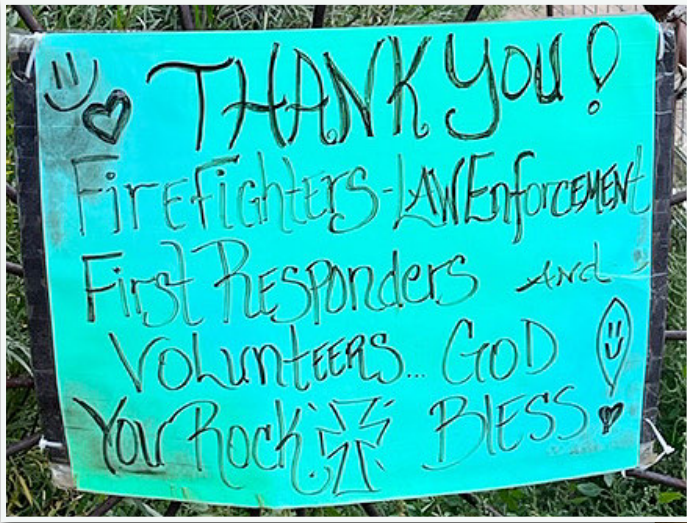 THANK YOU!
Firefighters-LAW Enforcement
First Responders And
Volunteers... GOD
You Rock! BLESS!